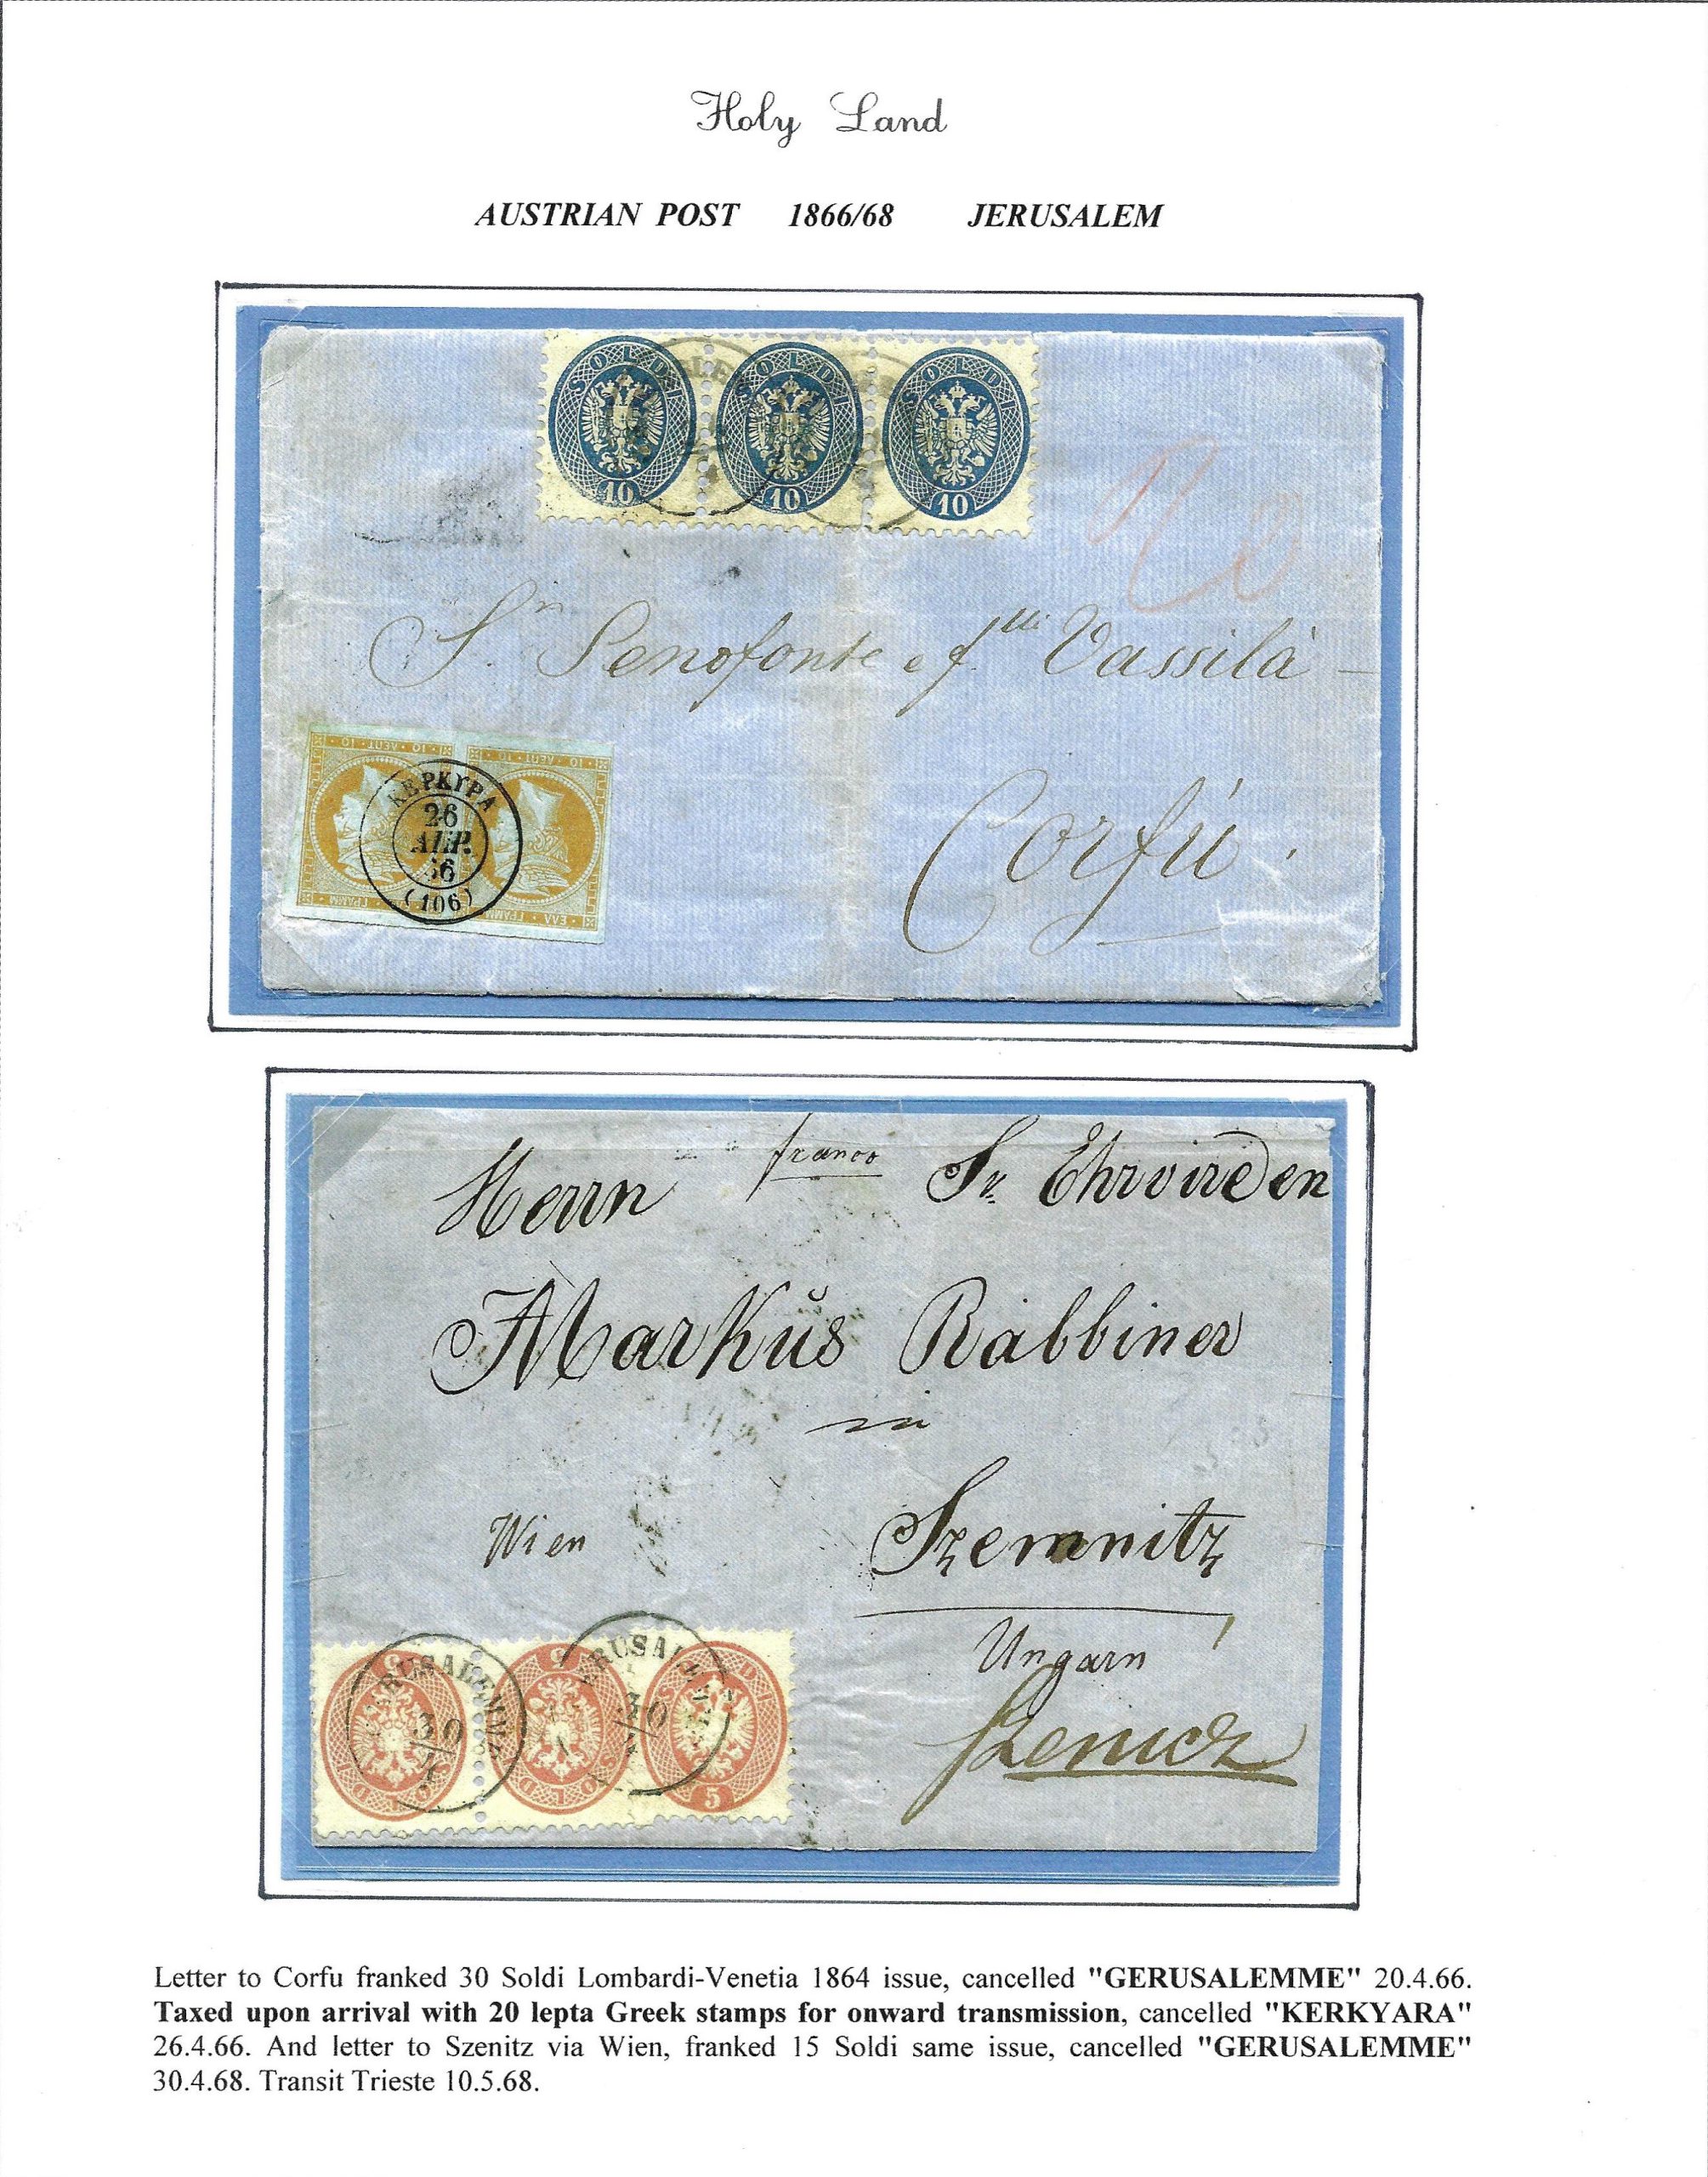 Holy Land
AUSTRIAN POST 1866/68 JERUSALEM
SOLDI SOLDI SOLDI
10 10 10
20
Sn. Senofonte e flli Vassilà
Corfù.
10 · ΛΕΠΤ · 10 10 · ΛΕΠΤ · 10
ΚΕΡΚΥΡΑ
26
ΑΠΡ.
66
(106)
ΕΛΛ ΓΡΑΜΜ
franco
Herrn Sr. Ehrwirden
Markus Rabbiner
in
Wien Szemnitz
Ungarn
Szenicz
GERUSALEMME GERUSALEMME
30/4 30/4
5
Letter to Corfu franked 30 Soldi Lombardi-Venetia 1864 issue, cancelled "GERUSALEMME" 20.4.66.
Taxed upon arrival with 20 lepta Greek stamps for onward transmission, cancelled "KERKYARA"
26.4.66. And letter to Szenitz via Wien, franked 15 Soldi same issue, cancelled "GERUSALEMME"
30.4.68. Transit Trieste 10.5.68.